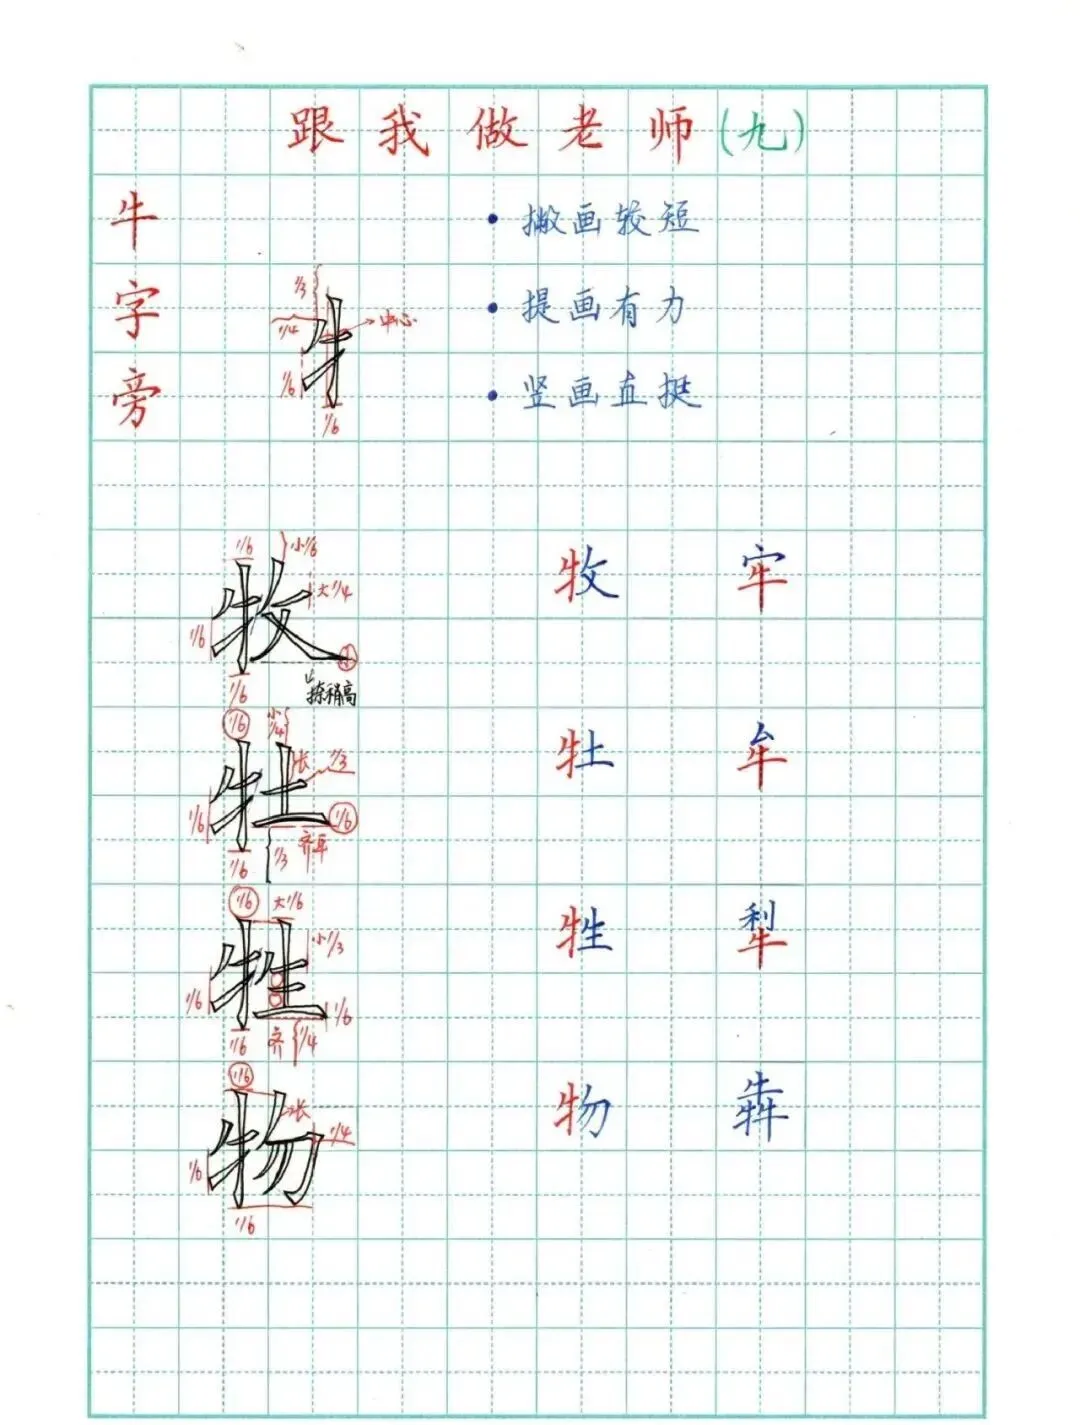 跟我做老师(九)
牛字旁
• 撇画较短
• 提画有力
• 竖画直挺
1/3
1/4
中心
1/6
1/6
1/6 小1/6
牧 大1/4
1/6
小
1/6 捺稍高
牧 牢
1/6 小1/4
牡 长 1/3
1/6 1/6
齐平
1/6 1/3
牡 牟
1/6 大1/6
牲 小1/3
1/6 1/6
1/6 齐 1/4
牲 犁
1/6
物 长
1/4
1/6
1/6
物 犇